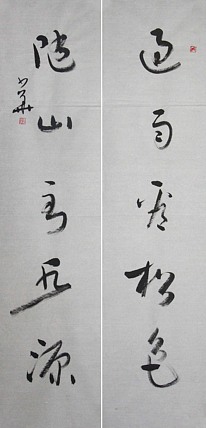 过雨看松色
随山到水源